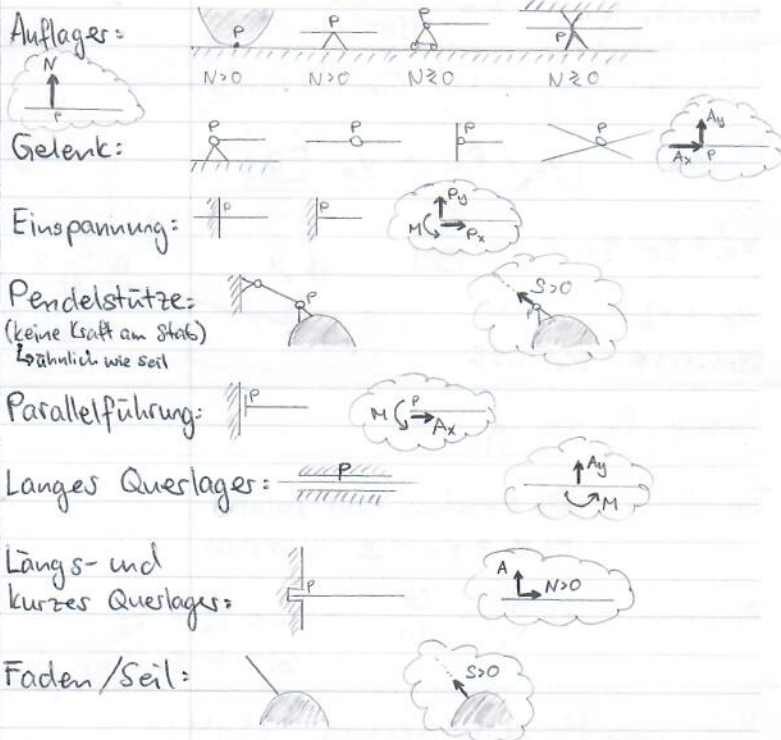 Auflager:
P P P P
N>0 N>0 N≷0 N≷0
N
P
Gelenk: P P P P Ay Ax P
Einspannung: P P Py M Px
Pendelstütze: P S>0 P
(keine Kraft am Stab)
↳ ähnlich wie Seil
Parallelführung: P M P Ax
Langes Querlager: P Ay M
Längs- und
kurzes Querlager: P A N>0
Faden/Seil: S>0